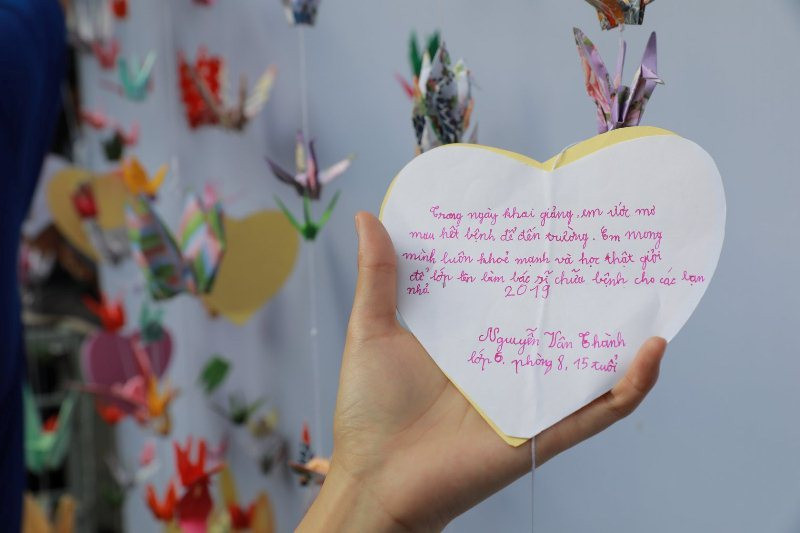 Trong ngày khai giảng, em ước mơ
mau hết bệnh để đến trường. Em mong
mình luôn khoẻ mạnh và học thật giỏi
để lớp lên làm bác sĩ chữa bệnh cho các bạn
nhỏ 2019
Nguyễn Văn Thành
lớp 6, phòng 8, 15 tuổi